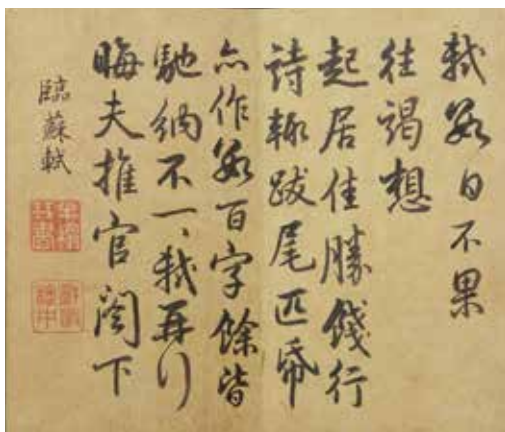 軾數日不果
往謁想
起居佳勝餞行
詩輒跋尾匹帋
亦作數百字餘皆
馳納不一一軾再拜
晦夫推官閣下
臨蘇軾